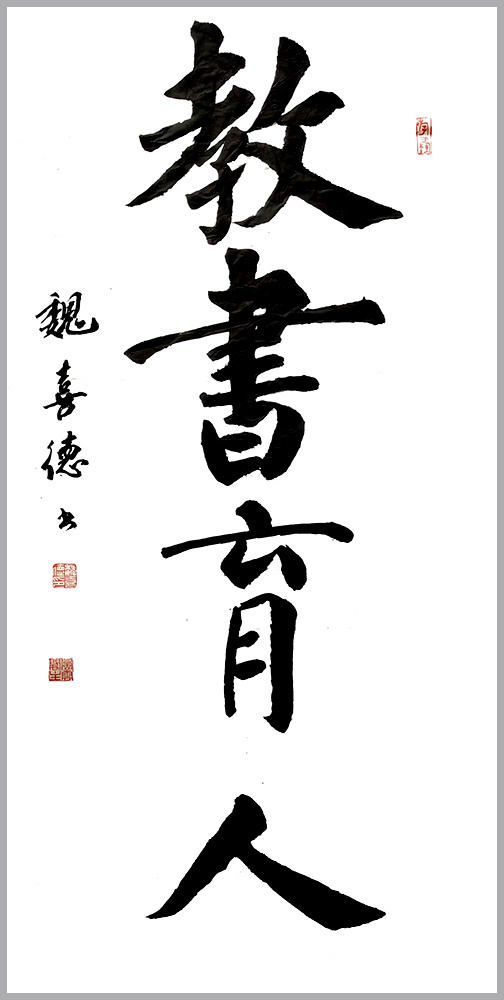 教書育人
魏喜德书